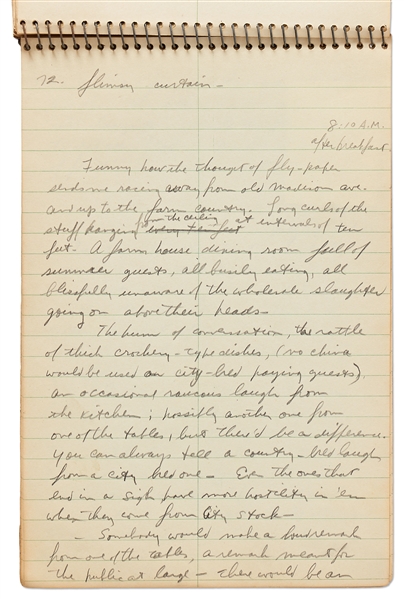 72. flimsy curtain -
8:10 A.M.
after breakfast.
Funny how the thought of fly-paper
sends me racing away from old madison ave.
and up to the farm country. Long curls of the
stuff hanging from the ceiling every ten feet at intervals of ten
feet. A farm house dining room full of
summer guests, all busily eating, all
blissfully unaware of the wholesale slaughter
going on above their heads -
The hum of conversation, the rattle
of thick crockery-type dishes, (no china
would be used on city-bred paying guests)
an occasional raucous laugh from
the kitchen; possibly another one from
one of the tables, but there'd be a difference.
You can always tell a country-bred laugh
from a city bred one - Even the ones that
end in a sigh have more hostility in 'em
when they come from city stock -
- Somebody would make a loud remark
from one of the tables, a remark meant for
the public at large - there would be an